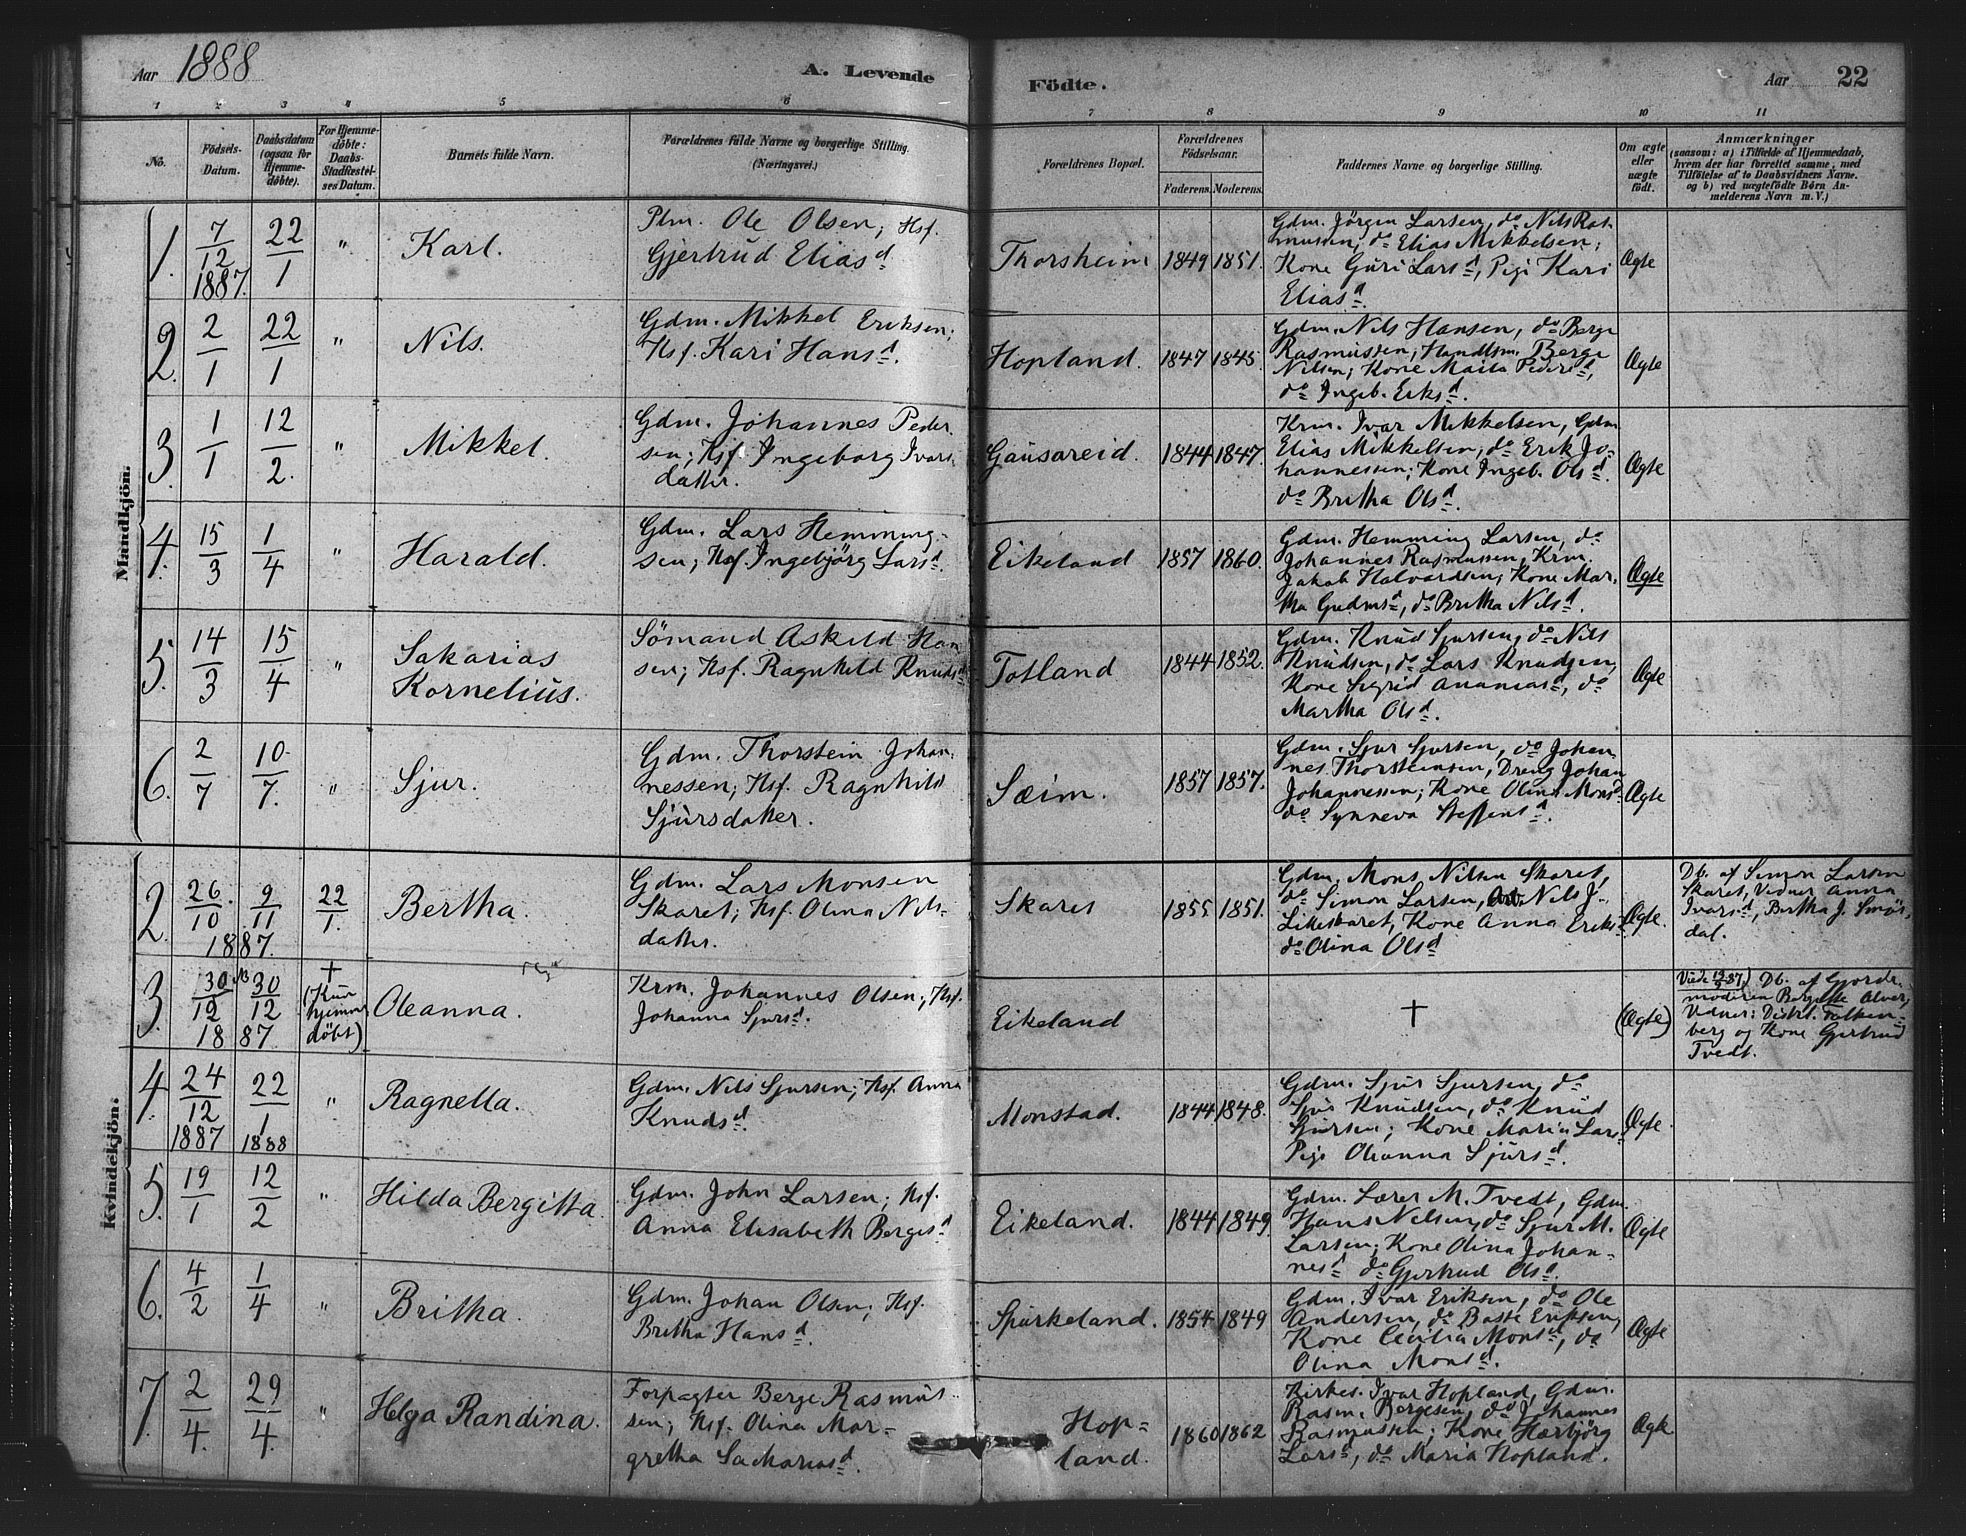 Aar 1888
A. Levende
Födte.
Aar 22
1 2 3 4 5 6 7 8 9 10 11
No.
Födsels-
Datum.
Daabsdatum
(ogsaa for
Hjemme-
döbte).
For Hjemme-
döbte:
Daabs-
Stadfæstel-
ses Datum.
Barnets fulde Navn.
Forældrenes fulde Navne og borgerlige Stilling.
(Næringsvei.)
Forældrenes Bopæl.
Forældrenes
Födselsaar.
Faderens. Moderens.
Faddernes Navne og borgerlige Stilling.
Om ægte
eller
uægte
födt.
Anmærkninger
(saasom: a) i Tilfælde af Hjemmedaab,
hvem der har forrettet samme, med
Tilföielse af to Daabsvidners Navne.
og b) ved uægtefödte Börn An-
melderens Navn m.V.)
Mandkjön:
1. 7/12 1887. 22/1 " Karl.
Plm. Ole Olsen; Hsf.
Gjertrud Eliasd
Thorsheim 1849 1851.
Gdm. Jörgen Larsen, do Nils Ras-
mussen, do Elias Mikkelsen;
Kone Guri Larsd, Pigi Kari
Eliasd.
Ægte
2. 2/1 22/1 " Nils.
Gdm. Mikkel Eriksen;
Hsf. Kari Hansd.
Hopland. 1847 1845.
Gdm. Nils Hansen, do Berge
Rasmussen, Handlsm. Berge
Nilsen; Kone Maita Pedersd,
do Ingeb. Eriksd.
Ægte
3. 1/1 12/2. " Mikkel.
Gdm. Johannes Peder-
sen; Hsf. Ingeborg Ivars-
datter.
Gausereid. 1844 1847.
Krm. Ivar Mikkelsen, Gdm
Elias Mikkelsen, do Erik Jo-
hannessen; Kone Ingeb. Olsd.
do Britha Olsd.
Ægte
4. 15/3 1/4 " Harald.
Gdm. Lars Hemming-
sen; Hsf. Ingebjörg Larsd.
Eikeland 1857 1860.
Gdm. Hemming Larsen, do
Johannes Rasmussen, Krm.
Jakob Halvardsen; Kone Mar-
tha Gudmsd, do Britha Nilsd.
Ægte
5. 14/3 15/4 " Sakarias
Kornelius.
Sömand Askild Han-
sen; Hsf. Ragnhild Knudsd
Totland 1844 1852.
Gdm. Knud Sjursen, do Nils
Knudsen, do Lars Knudsen,
Kone Sigrid Ananiasd, do
Martha Olsd.
Ægte
6. 2/7 10/7. " Sjur.
Gdm. Thorstein Johan-
nessen; Hsf. Ragnhild
Sjursdatter.
Sæim. 1857 1857.
Gdm. Sjur Sjursen, do Johan-
nes Thorsteinsen, Dreng Johan
Johannessen; Kone Olina Monsd
do Synneva Steffensd.
Ægte
Kvindekjön:
2. 26/10 1887. 9/11 22/1. Bertha.
Gdm. Lars Monsen
Skaret; Hsf. Olina Nils-
datter.
Skaret 1855 1851.
Gdm. Mons Nilsen Skaret,
do Simon Larsen, Nils J.
Kone Anna Eriks-
do Olina Olsd
Ægte.
Db. af Simon Larsen
Skaret, Vidner Anna
Ivarsd, Bertha J. Smös-
dal.
3. 30/12 1887. 30/12 + (Kun
hjemme-
döbt) Oleanna.
Krm. Johannes Olsen; Hsf.
Johanna Sjursd.
Eikeland
+
(Ægte)
Db. af Gjorde-
moderen Bergitte Alver,
Vidner: Distrl. Falken-
berg og Kone Gjertrud
Tvedt.
4. 24/12 1887 22/1 1888 " Ragnella.
Gdm. Nils Sjursen; Hsf. Anna
Knudsd.
Monstad. 1844 1848.
Gdm. Sjur Sjursen, do
Sjur Knudsen, do Knud
Sjursen; Kone Maria Lars-
Pige Oleanna Sjursd.
Ægte.
5. 19/1 12/2 " Hilda Bergitta.
Gdm. John Larsen; Hsf.
Anna Elisabeth Bergesd
Eikeland. 1844 1849.
Gdm. Lærer M. Tvedt, Gdm.
Hans Nilsen, do Sjur M.
Larsen; Kone Olina Johan-
nesd do Gjertrud Olsd.
Ægte
6. 4/2 1/4 " Britha.
Gdm. Johan Olsen; Hsf.
Britha Hansd.
Spurkeland. 1854 1849
Gdm. Ivar Eriksen, do Ole
Andersen, do Baste Eriksen,
Kone Cecilia Monsd, do
Olina Monsd.
Ægte
7. 2/4. 29/4. " Helga Randina.
Forpagter Berge Rasmus-
sen; Hsf. Olina Mar-
gretha Sachariasd.
Hop-
land. 1860 1862
Kirkes. Ivar Hopland, Gdm.
Rasm. Bergesen, do Johannes
Rasmussen; Kone Hærbjörg
Larsd, do Maria Hopland.
Ægte